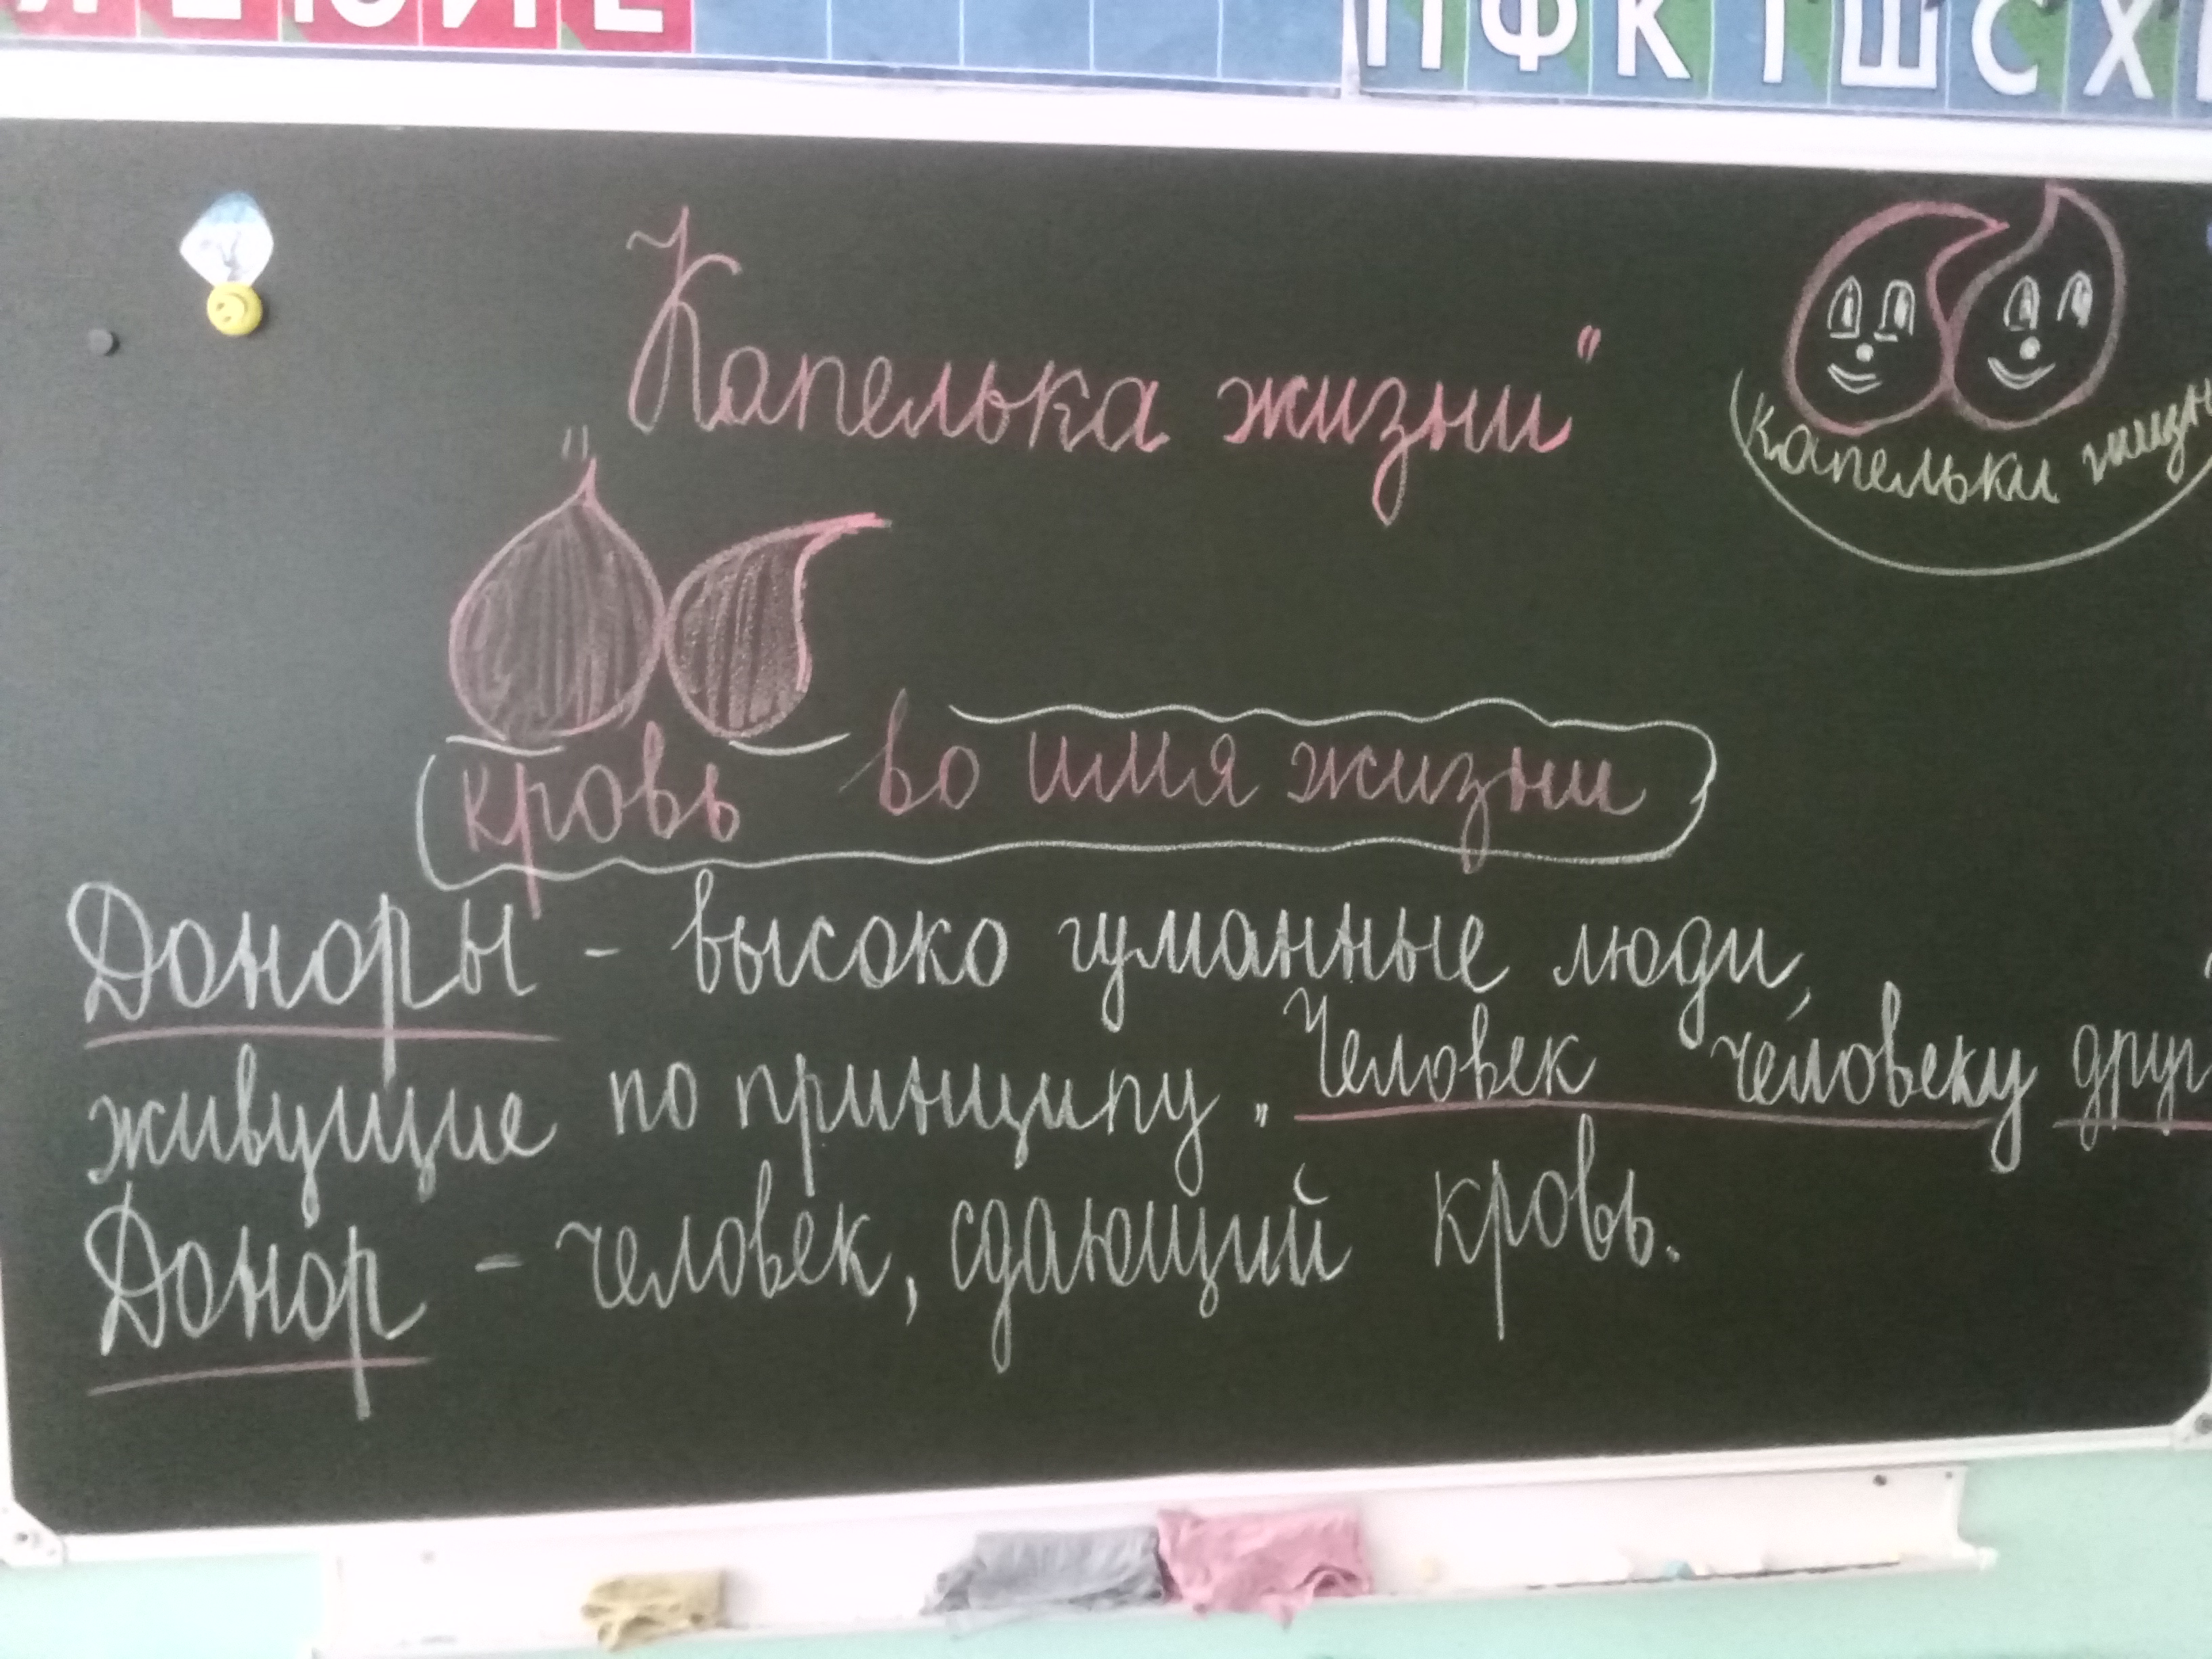 Я Ё Ю И Е
П Ф К Т Ш С Х
"Капелька жизни"
Капельки
кровь во имя жизни
Доноры - высоко гуманные люди,
живущие по принципу „Человек человеку друг
Донор - человек, сдающий кровь.